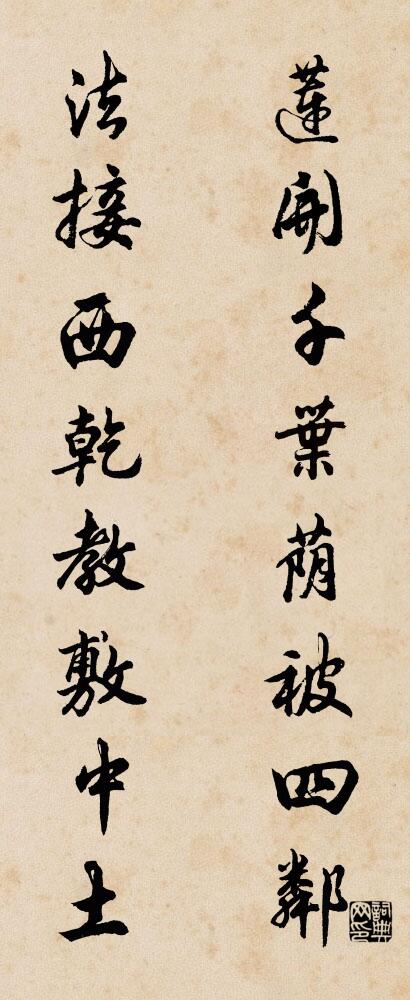 蓮開千葉蔭被四鄰
法接西乾教敷中土
詞典网印